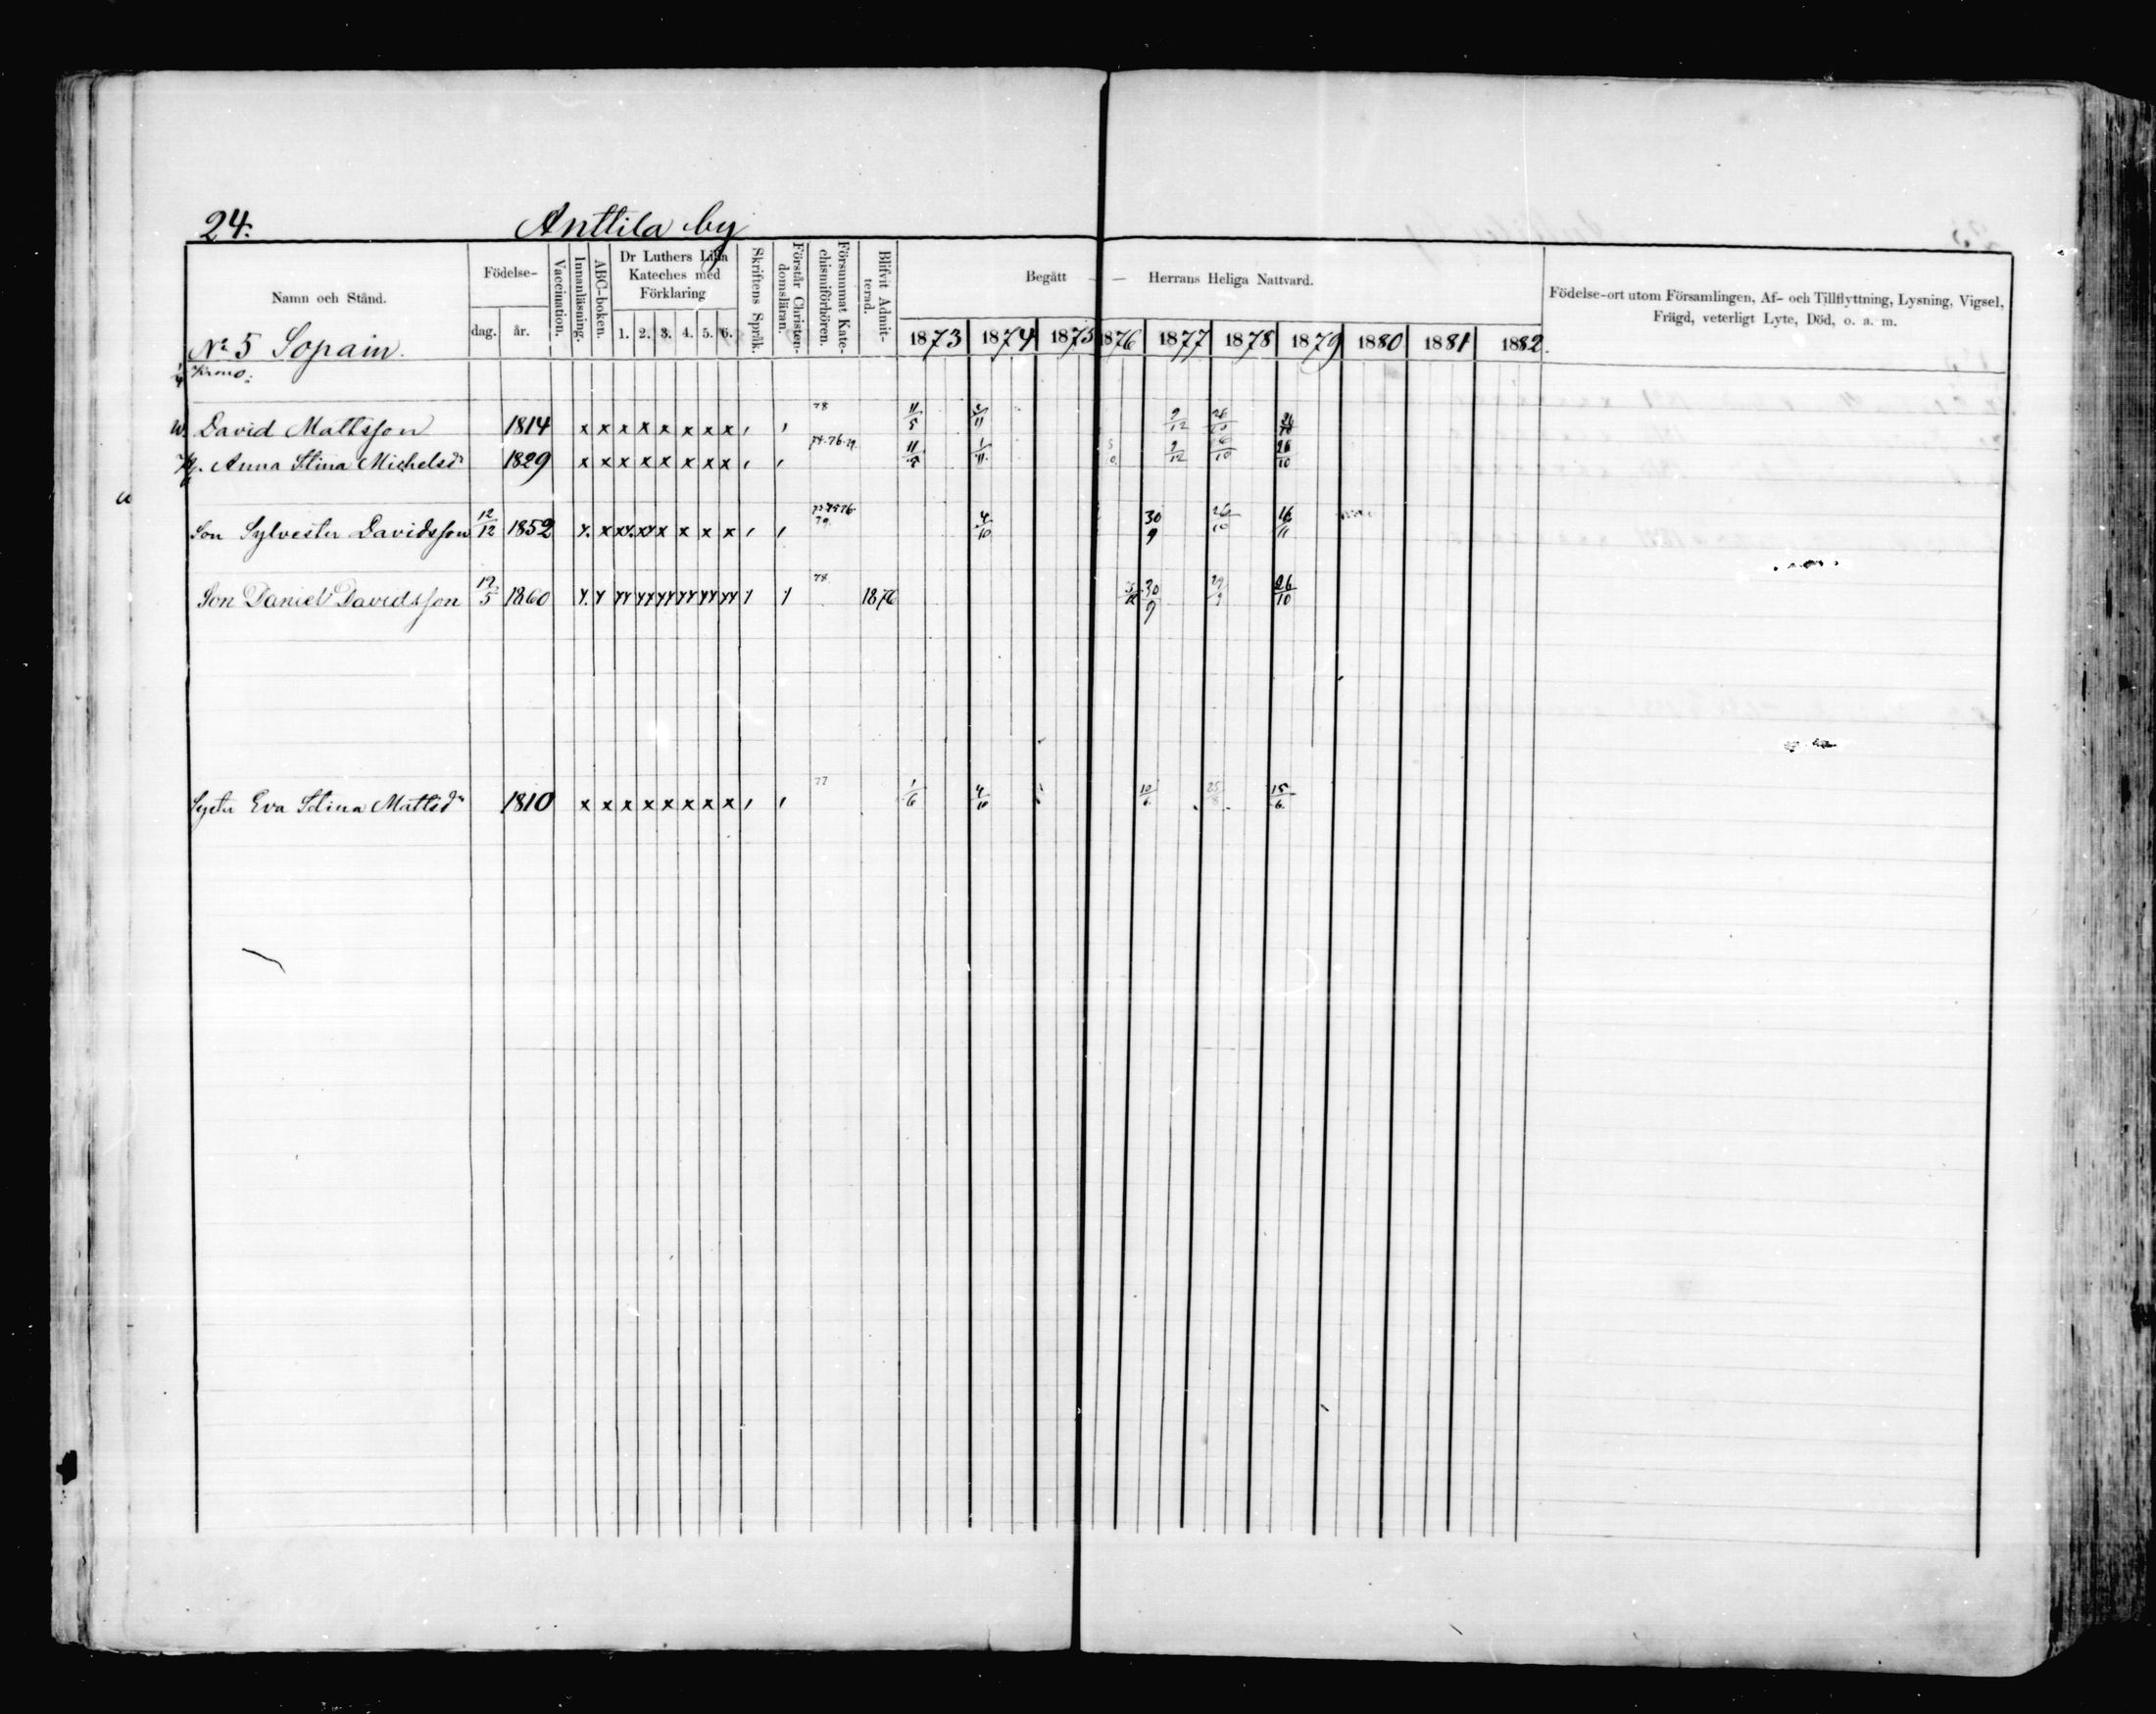 24. Anttila by
Namn och Stånd. Födelse- dag. år. Vaccination. Innanläsning. ABC-boken. Dr Luthers Lilla Kateches med Förklaring 1. 2. 3. 4. 5. 6. Skriftens Språk. Förstår Christendomsläran. Försummat Katechismiförhören. Blifvit Admitterad. Begått — Herrans Heliga Nattvard. 1873 1874 1875 1876 1877 1878 1879 1880 1881 1882. Födelse-ort utom Församlingen, Af- och Tillflyttning, Lysning, Vigsel, Frägd, veterligt Lyte, Död, o. a. m.
No 5 Sopain.
Krono.
David Mattsson 1814 x x x x x x x x , , 78 11/5 9/12 26/10 26/10
Anna Stina Michelsdr 1829 x x x x x x x x , , 74.76.79. 11/5 1/11 9/12 26/10 26/10
Son Sylvester Davidsson 12/12 1852 , , 79. 4/10 30/9 26/10 16/11
Son Daniel Davidsson 19/5 1860 78. 1876 30/9 29/9 26/10
Syster Eva Stina Mattsdr 1810 x x x x x x x x , , 77 1/6 4/10 10/6. 25/8. 15/6.